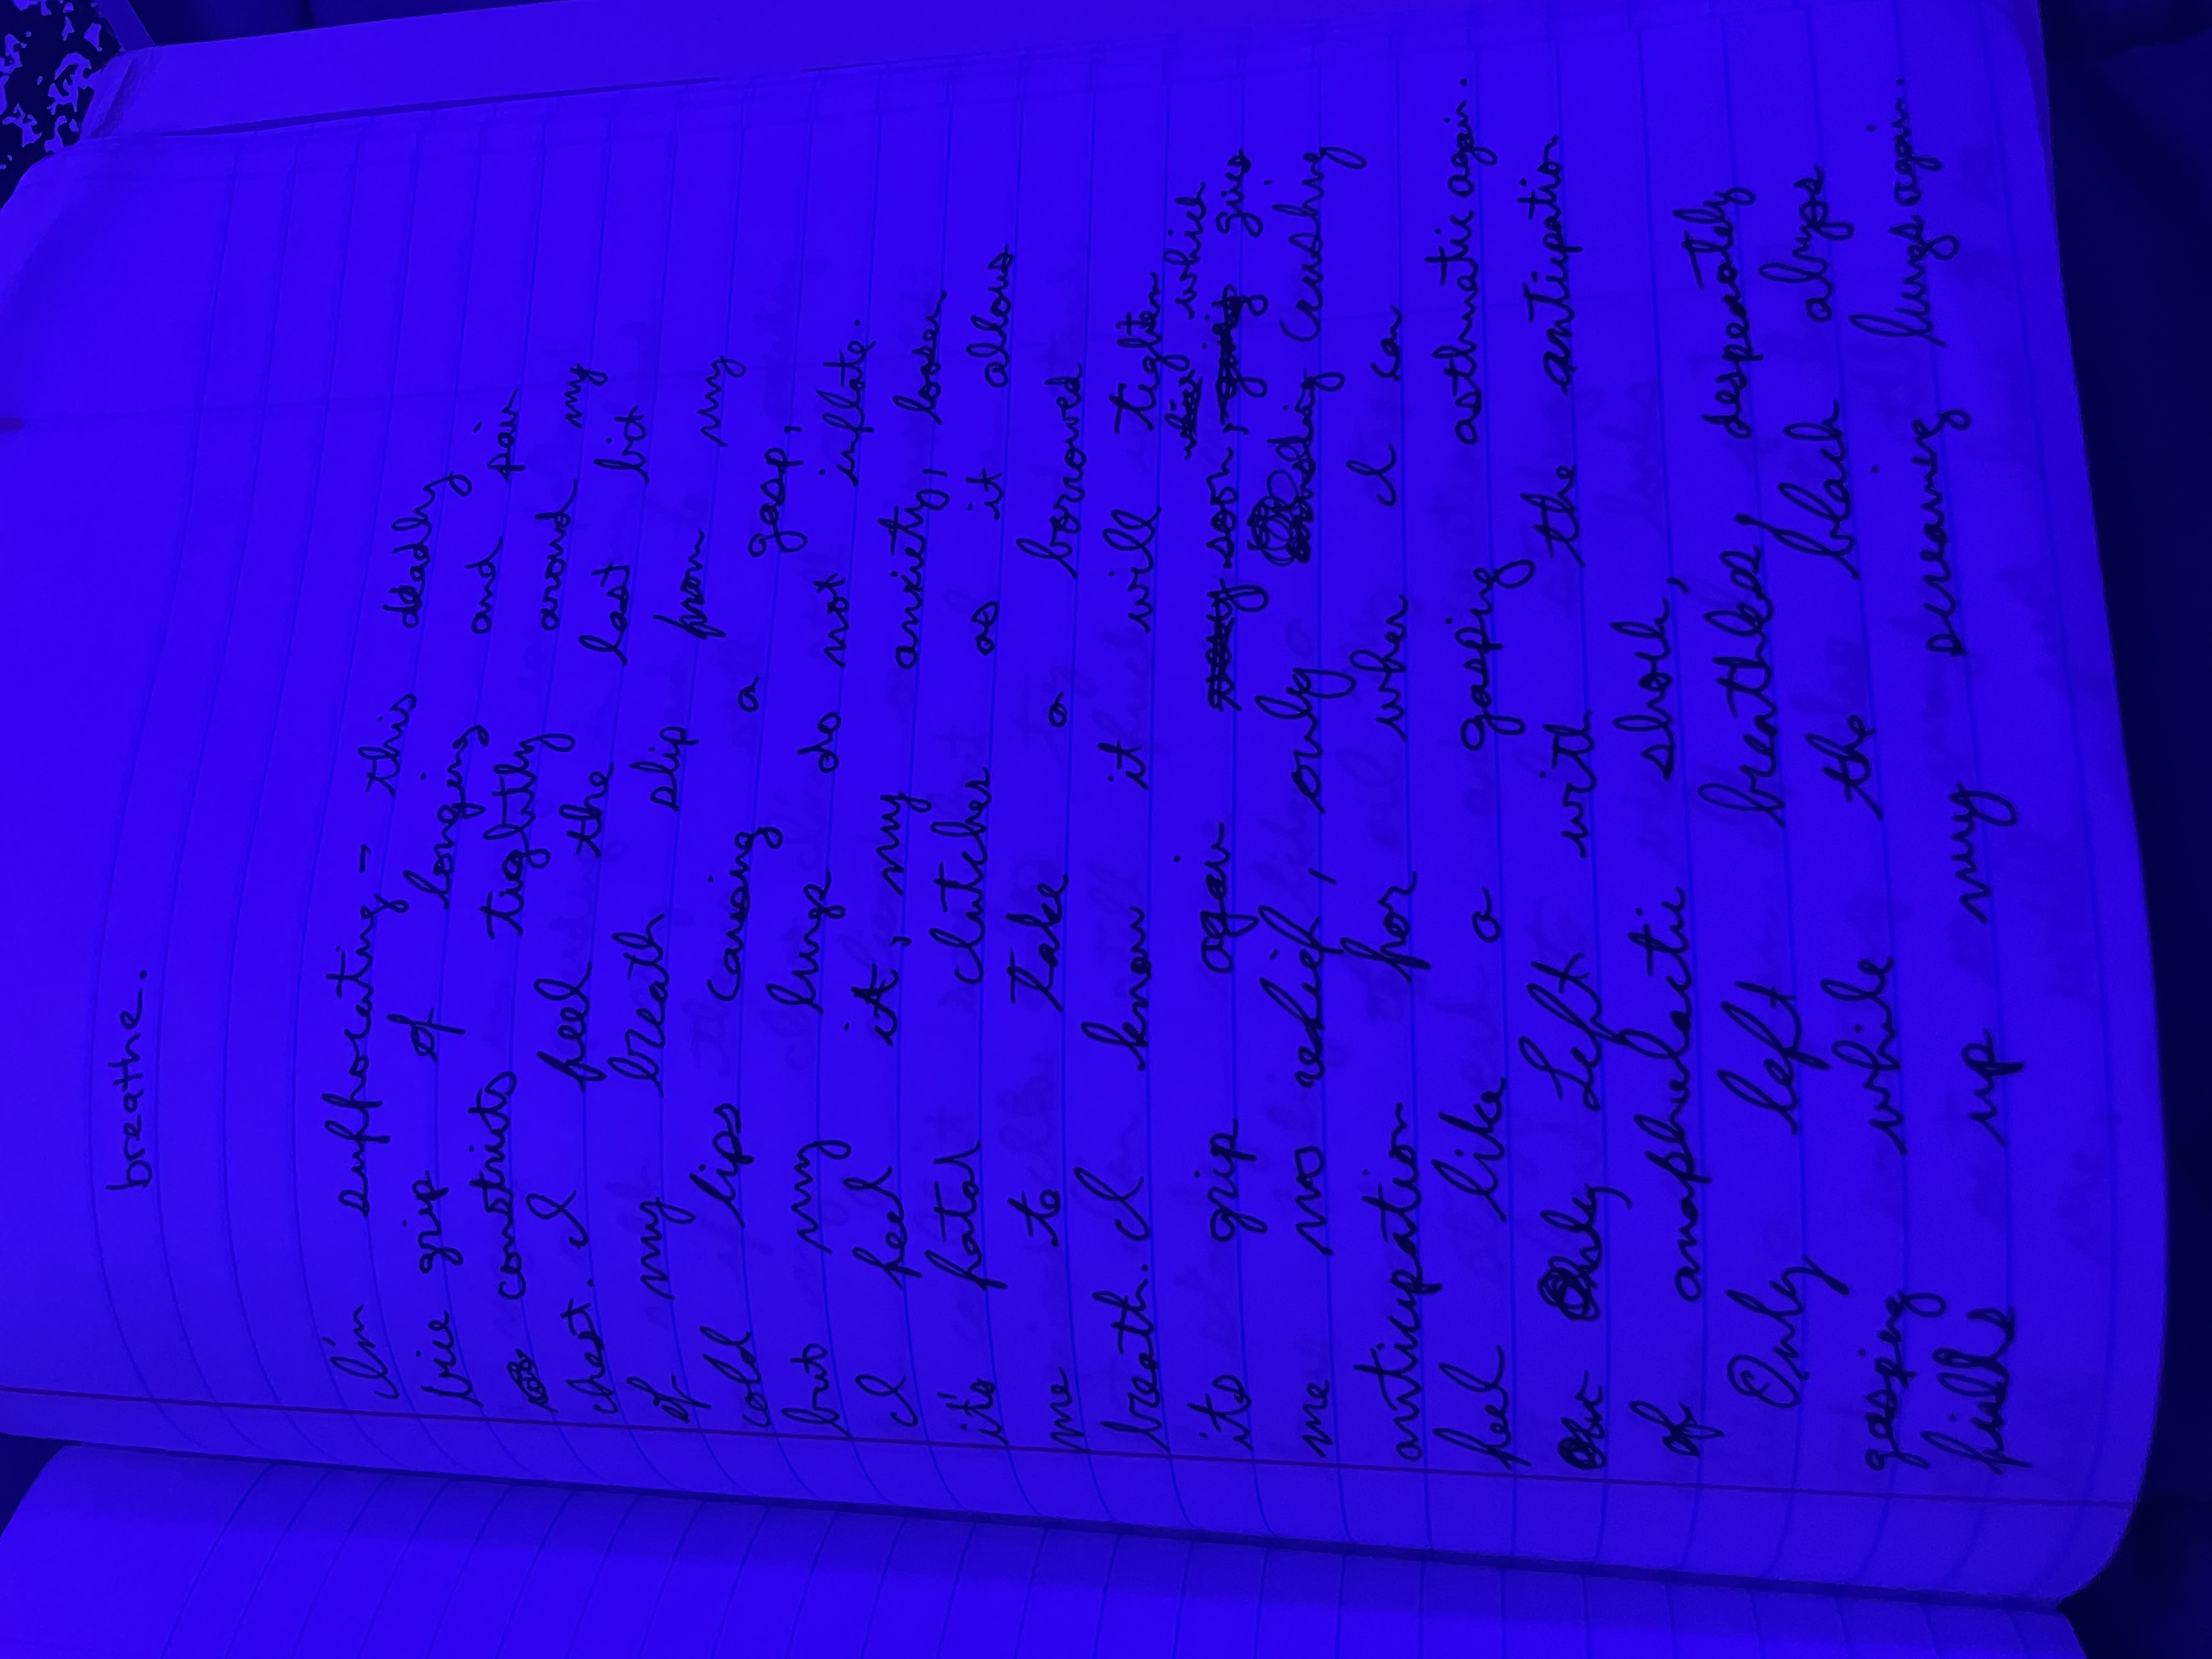 breathe.
I'm suffocating - this deadly
vice grip of longing and pain
constricts tightly around my
chest. I feel the last bit
of my breath slip from my
cold lips causing a gasp,
but my lungs do not inflate.
I feel it, my anxiety, loosen
it's fatal clutches as it allows
me to take a borrowed
breath. I know it will tighten
its grip again soon, which gives
me no relief, only crushing
anticipation for when I can
feel like a gasping asthmatic again.
Only Left with the anticipation
of anaphelactic shock,
Only left breathless, desperately
gasping while the black abyss
fills up my screaming lungs again.